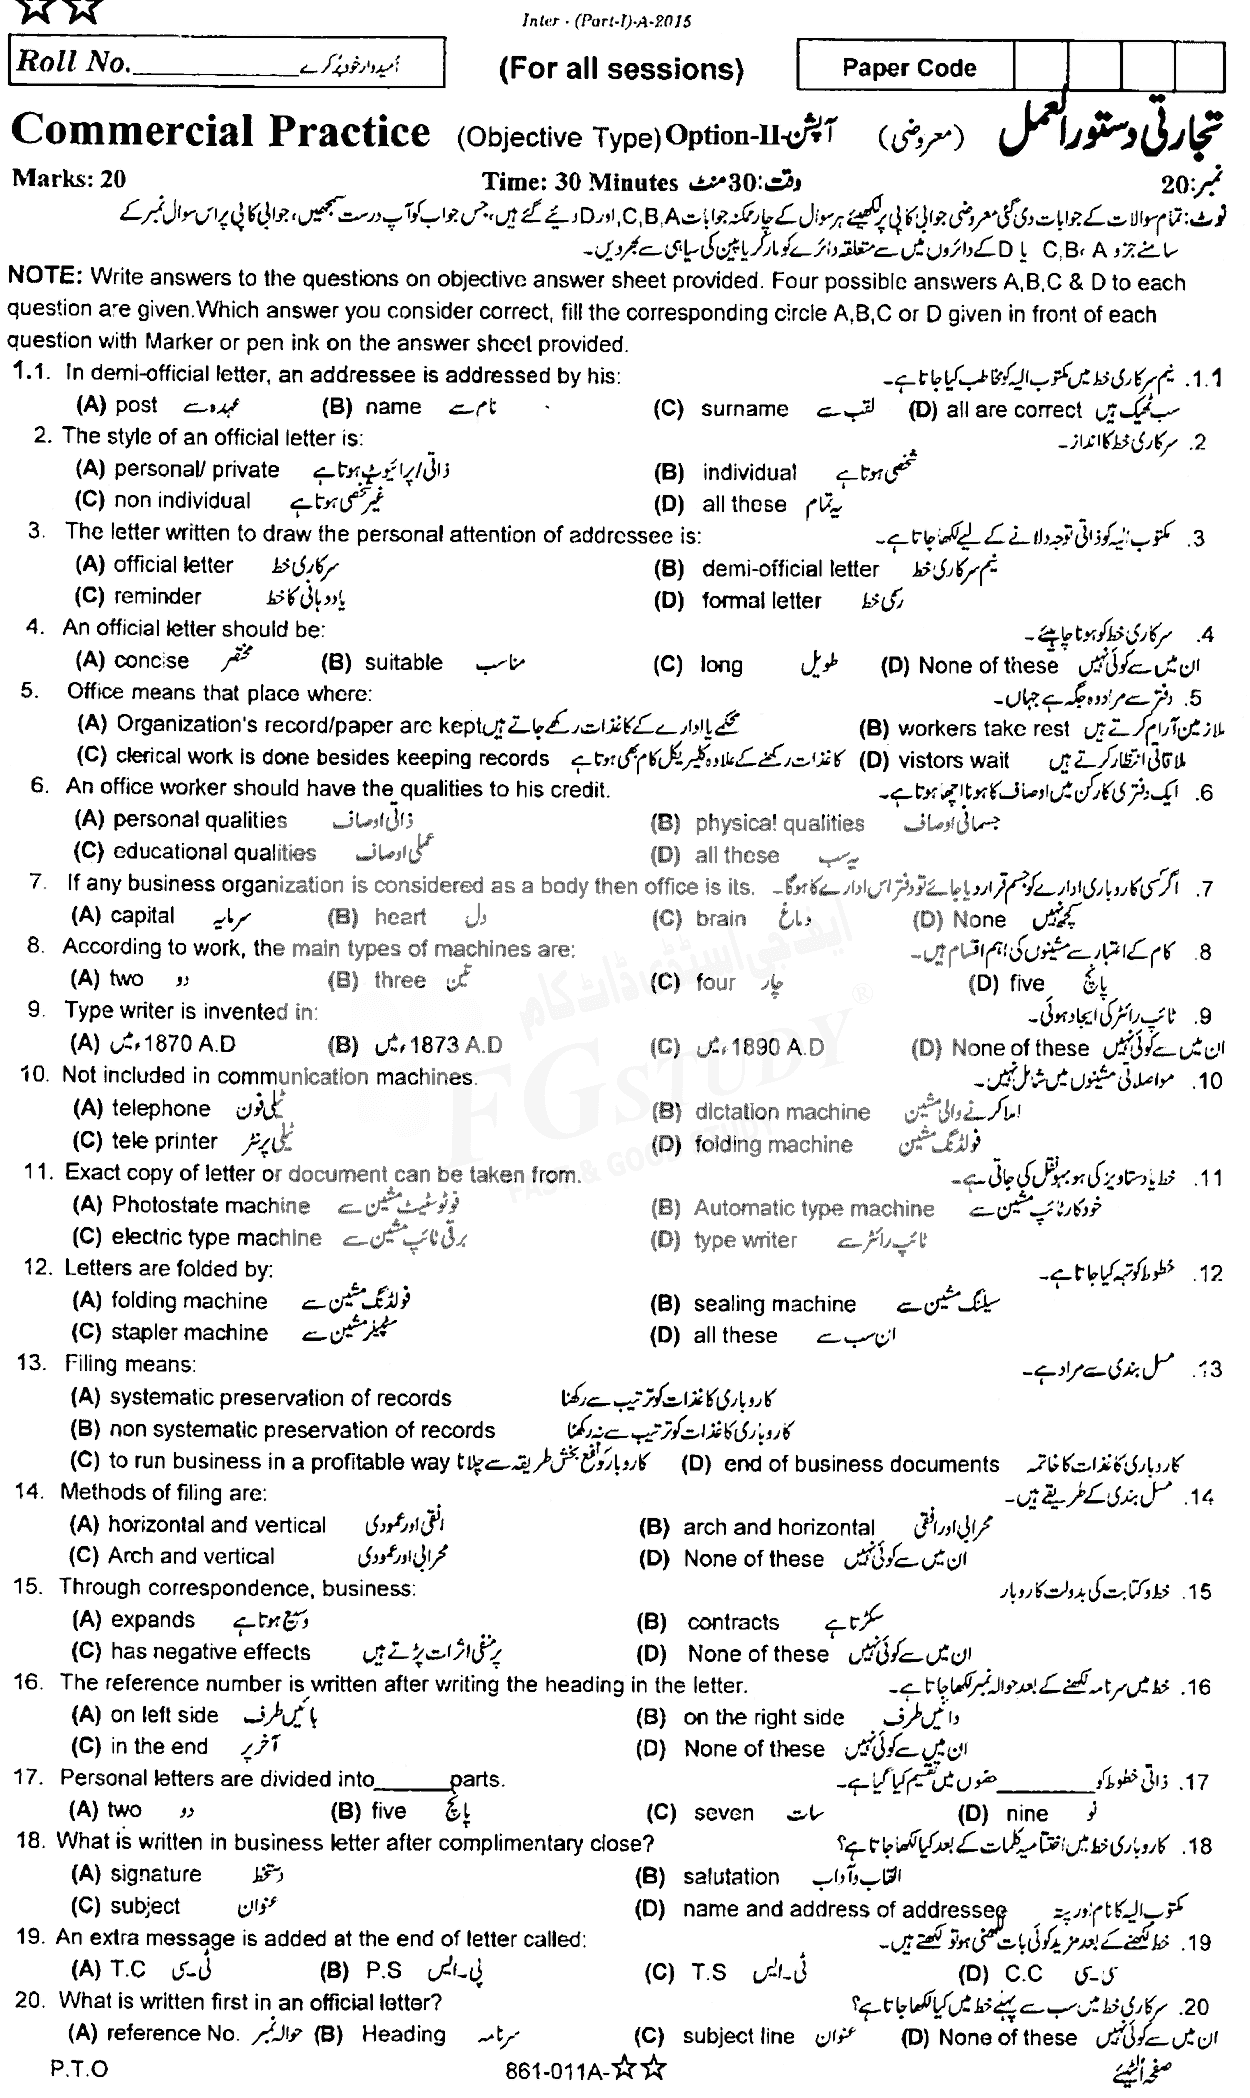 Inter - (Part-I)-A-2015
Roll No.____________ اُمیدوار خود پُر کرے (For all sessions) Paper Code
Commercial Practice (Objective Type) Option-II-آپشن (معروضی) تجارتی دستور العمل
Marks: 20 Time: 30 Minutes وقت:30 منٹ نمبر:20
نوٹ: تمام سوالات کے جوابات دی گئی معروضی جوابی کاپی پر لکھیئے ہر سوال کے چار ممکنہ جوابات C,B,A, اور D دیئے گئے ہیں، جس جواب کو آپ درست سمجھیں، جوابی کاپی پر اس سوال نمبر کے
سامنے جزو C,B، A یا D کے دائروں میں سے متعلقہ دائرے کو مارکر یا پین کی سیاہی سے بھر دیں۔
NOTE: Write answers to the questions on objective answer sheet provided. Four possible answers A,B,C & D to each
question are given.Which answer you consider correct, fill the corresponding circle A,B,C or D given in front of each
question with Marker or pen ink on the answer sheet provided.
1.1. In demi-official letter, an addressee is addressed by his: 1.1. نیم سرکاری خط میں مکتوب الیہ کو مخاطب کیا جاتا ہے۔
(A) post عہدہ سے (B) name نام سے (C) surname لقب سے (D) all are correct سب ٹھیک ہیں
2. The style of an official letter is: 2. سرکاری خط کا انداز۔
(A) personal/ private ذاتی/پرائیویٹ ہوتا ہے (B) individual شخصی ہوتا ہے
(C) non individual غیر شخصی ہوتا ہے (D) all these یہ تمام
3. The letter written to draw the personal attention of addressee is: 3. مکتوب الیہ کو ذاتی توجہ دلانے کے لیے لکھا جاتا ہے۔
(A) official letter سرکاری خط (B) demi-official letter نیم سرکاری خط
(C) reminder یاد دہانی کا خط (D) formal letter رسمی خط
4. An official letter should be: 4. سرکاری خط کو ہونا چاہیئے۔
(A) concise مختصر (B) suitable مناسب (C) long طویل (D) None of these ان میں سے کوئی نہیں
5. Office means that place where: 5. دفتر سے مراد وہ جگہ ہے جہاں۔
(A) Organization's record/paper are kept محکمے یا ادارے کے کاغذات رکھے جاتے ہیں (B) workers take rest ملازمین آرام کرتے ہیں
(C) clerical work is done besides keeping records کاغذات رکھنے کے علاوہ کلیریکل کام بھی ہوتا ہے (D) vistors wait ملاقاتی انتظار کرتے ہیں
6. An office worker should have the qualities to his credit. 6. ایک دفتری کارکن میں اوصاف کا ہونا اچھا ہوتا ہے۔
(A) personal qualities ذاتی اوصاف (B) physical qualities جسمانی اوصاف
(C) educational qualities علمی اوصاف (D) all these یہ سب
7. If any business organization is considered as a body then office is its. 7. اگر کسی کاروباری ادارے کو جسم قرار دیا جائے تو دفتر اس ادارے کا ہوگا۔
(A) capital سرمایہ (B) heart دل (C) brain دماغ (D) None کچھ نہیں
8. According to work, the main types of machines are: 8. کام کے اعتبار سے مشینوں کی اہم اقسام ہیں۔
(A) two دو (B) three تین (C) four چار (D) five پانچ
9. Type writer is invented in: 9. ٹائپ رائٹر کی ایجاد ہوئی۔
(A) 1870 A.D ء میں (B) 1873 A.D ء میں (C) 1890 A.D ء میں (D) None of these ان میں سے کوئی نہیں
10. Not included in communication machines. 10. مواصلاتی مشینوں میں شامل نہیں۔
(A) telephone ٹیلی فون (B) dictation machine املا کرنے والی مشین
(C) tele printer ٹیلی پرنٹر (D) folding machine فولڈنگ مشین
11. Exact copy of letter or document can be taken from. 11. خط یا دستاویز کی ہو بہو نقل کی جاتی ہے۔
(A) Photostate machine فوٹوسٹیٹ مشین سے (B) Automatic type machine خودکار ٹائپ مشین سے
(C) electric type machine برقی ٹائپ مشین سے (D) type writer ٹائپ رائٹر سے
12. Letters are folded by: 12. خطوط کو تہہ کیا جاتا ہے۔
(A) folding machine فولڈنگ مشین سے (B) sealing machine سیلنگ مشین سے
(C) stapler machine سٹیپلر مشین سے (D) all these ان سب سے
13. Filing means: 13. مسل بندی سے مراد ہے۔
(A) systematic preservation of records کاروباری کاغذات کو ترتیب سے رکھنا
(B) non systematic preservation of records کاروباری کاغذات کو ترتیب سے نہ رکھنا
(C) to run business in a profitable way کاروبار کو نفع بخش طریقہ سے چلانا (D) end of business documents کاروباری کاغذات کا خاتمہ
14. Methods of filing are: 14. مسل بندی کے طریقے ہیں۔
(A) horizontal and vertical افقی اور عمودی (B) arch and horizontal محرابی اور افقی
(C) Arch and vertical محرابی اور عمودی (D) None of these ان میں سے کوئی نہیں
15. Through correspondence, business: 15. خط و کتابت کی بدولت کاروبار
(A) expands وسیع ہوتا ہے (B) contracts سکڑتا ہے
(C) has negative effects پر منفی اثرات پڑتے ہیں (D) None of these ان میں سے کوئی نہیں
16. The reference number is written after writing the heading in the letter. 16. خط میں سرنامہ لکھنے کے بعد حوالہ نمبر لکھا جاتا ہے۔
(A) on left side بائیں طرف (B) on the right side دائیں طرف
(C) in the end آخر پر (D) None of these ان میں سے کوئی نہیں
17. Personal letters are divided into______parts. 17. ذاتی خطوط کو ________ حصوں میں تقسیم کیا گیا ہے۔
(A) two دو (B) five پانچ (C) seven سات (D) nine نو
18. What is written in business letter after complimentary close? 18. کاروباری خط میں اختتامیہ کلمات کے بعد کیا لکھا جاتا ہے؟
(A) signature دستخط (B) salutation القاب و آداب
(C) subject عنوان (D) name and address of addressee مکتوب الیہ کا نام اور پتہ
19. An extra message is added at the end of letter called: 19. خط لکھنے کے بعد مزید کوئی بات لکھنی ہو تو لکھتے ہیں۔
(A) T.C ٹی۔سی (B) P.S پی۔ایس (C) T.S ٹی۔ایس (D) C.C سی۔سی
20. What is written first in an official letter? 20. سرکاری خط میں سب سے پہلے خط میں کیا لکھا جاتا ہے؟
(A) reference No. حوالہ نمبر (B) Heading سرنامہ (C) subject line عنوان (D) None of these ان میں سے کوئی نہیں
P.T.O 861-011A-☆☆ صفحہ اُلٹیئے